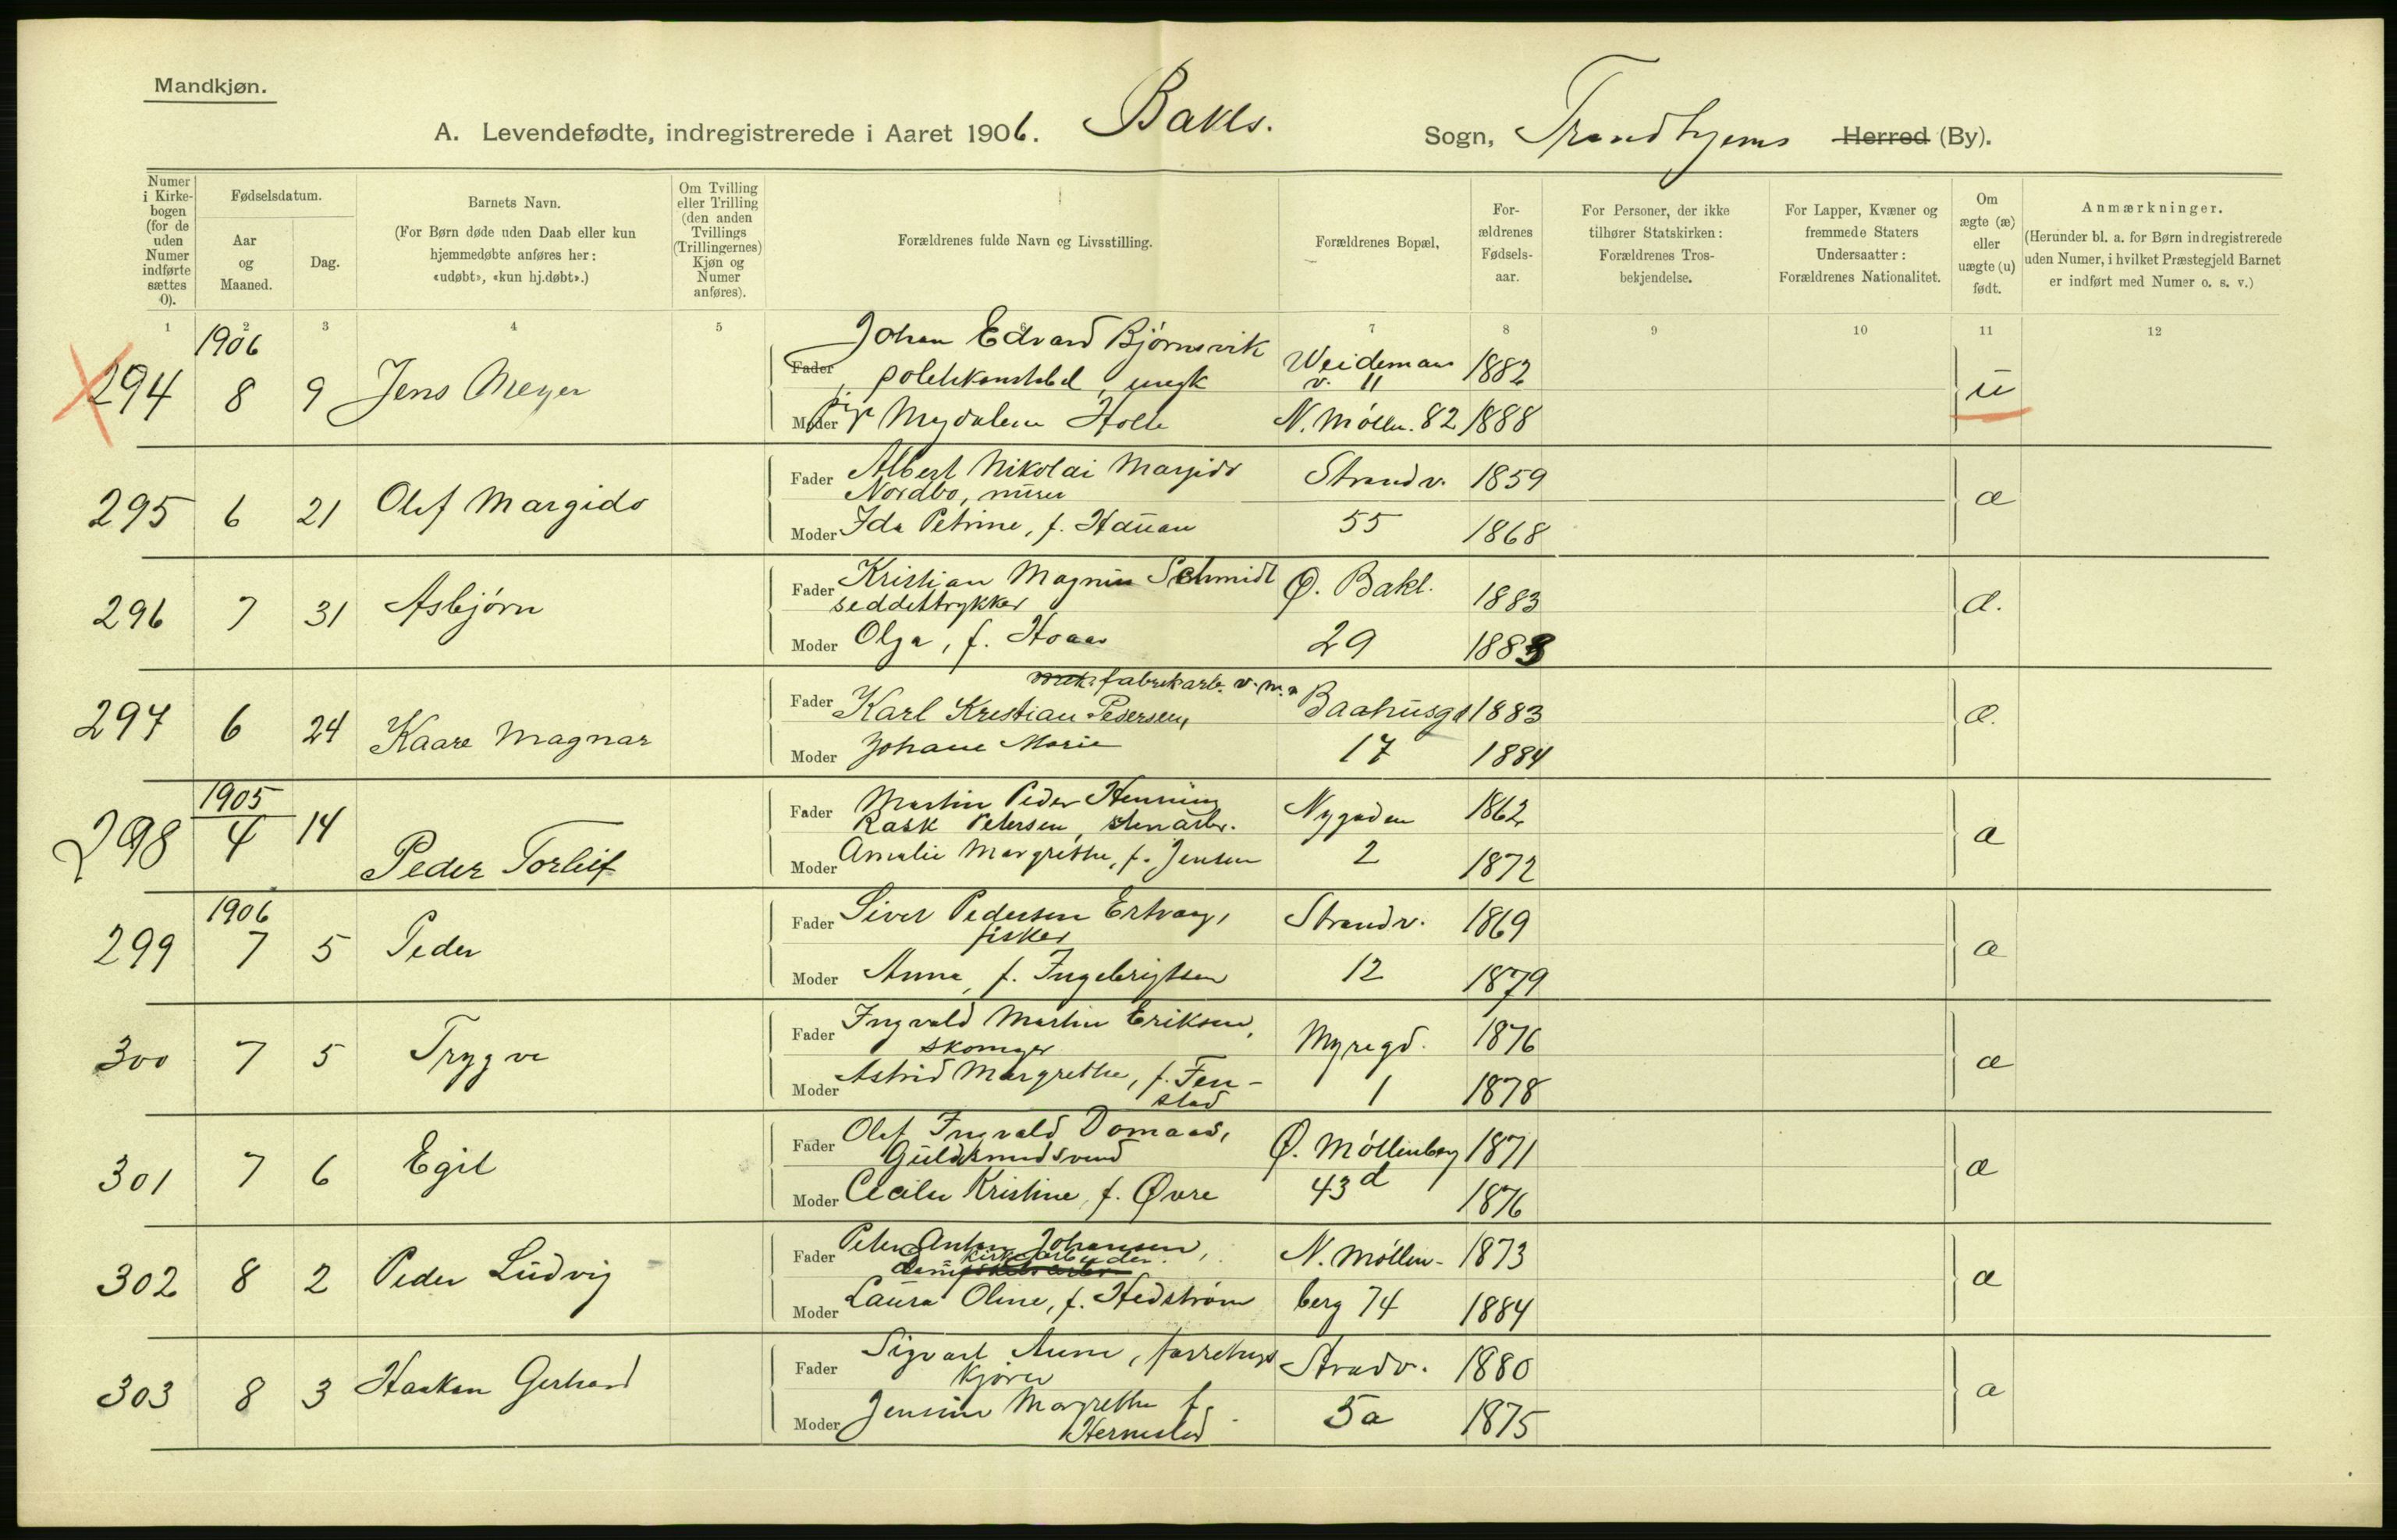 Mandkjøn.
A. Levendefødte, indregistrerede i Aaret 1906. Bakls. Sogn, Trondhjems Herred (By).
Numer i Kirkebogen (for de uden Numer indførte sættes 0).
Fødselsdatum.
Aar og Maaned.
Dag.
Barnets Navn.
(For Børn døde uden Daab eller kun hjemmedøbte anføres her: «udøbt», «kun hj.døbt».)
Om Tvilling eller Trilling (den anden Tvillings (Trillingernes) Kjøn og Numer anføres).
Forældrenes fulde Navn og Livsstilling.
Forældrenes Bopæl,
Forældrenes Fødselsaar.
For Personer, der ikke tilhører Statskirken: Forældrenes Trosbekjendelse.
For Lapper, Kvæner og fremmede Staters Undersaatter: Forældrenes Nationalitet.
Om ægte (æ) eller uægte (u) født.
Anmærkninger.
(Herunder bl. a. for Børn indregistrerede uden Numer, i hvilket Præstegjeld Barnet er indført med Numer o. s. v.)
1 2 3 4 5 7 8 9 10 11 12
1906
294 8 9 Jens Meyer
Fader Johan Edvard Bjørnsvik
politikonstabel, ungk
Weideman
v. 11
1882
u
Moder pige Magdalene Holte N. Møllen. 82 1888
295 6 21 Olef Margido
Fader Albert Nikolai Margido Strandv. 1859
Nordbo, murer
æ
Moder Ida Petrine, f. Hauan 55 1868
296 7 31 Asbjørn
Fader Kristian Magnus Schmidt Ø. Bakl. 1883
seddeltrykker
æ.
Moder Olga, f. Hoaas 29 1883
297 6 24 Kaare Magnar
fabrikarb. v. m.
Fader Karl Kristian Pedersen, Baahusgd 1883
æ.
Moder Johane Marie 17 1884
1905
298 4 14 Peder Torleif
Fader Martin Peder Henning Nygaden 1862
Rask Petersen, stenarb.
æ
Moder Amalie Margrethe, f. Jensen 2 1872
1906
299 7 5 Peder
Fader Siver Pedersen Ertvaag, Strandv. 1869
fisker
æ
Moder Anna, f. Ingebrigtsen 12 1879
300 7 5 Trygve
Fader Ingvald Martin Eriksen, Myregd. 1876
skomager
æ
Moder Astrid Margrethe, f. Fen-
stad
1 1878
301 7 6 Egil
Fader Olaf Ingvald Domaas, Ø. Møllenberg 1871
Guldsmedsvend
æ
Moder Cecilie Kristine, f. Øvre 43d 1876
302 8 2 Peder Ludvig
Fader Peter Anton Johansen, N. Møllen- 1873
kirkearbeider.
æ
Moder Laura Oline, f. Hedstrøm berg 74 1884
303 8 3 Haakon Gerhard
Fader Sigvart Aune, forretngs Strandv. 1880
kjører
æ
Moder Jensine Margrethe f.
Hernestad
5a 1875